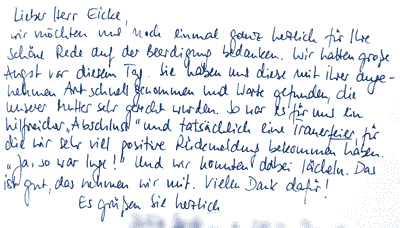 Lieber Herr Eicke,
wir möchten uns noch einmal ganz herzlich für Ihre
schöne Rede auf der Beerdigung bedanken. Wir hatten große
Angst vor diesem Tag. Sie haben uns diese mit ihrer ange-
nehmen Art schnell genommen und Worte gefunden, die
unserer Mutter sehr gerecht wurden. So war es für uns ein
hilfreicher „Abschluss" und tatsächlich eine Trauerfeier, für
die wir sehr viel positive Rückmeldung bekommen haben.
„Ja, so war Inge!" Und wir konnten dabei lächeln. Das
ist gut, das nehmen wir mit. Vielen Dank dafür!
Es grüßen Sie herzlich